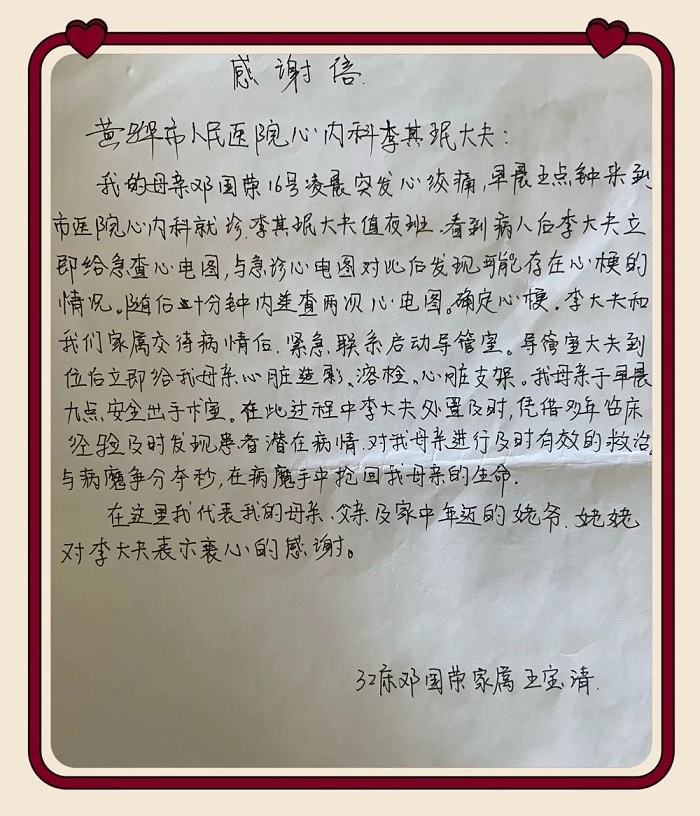 感谢信
黄骅市人民医院心内科李其珉大夫:
我的母亲邓国荣16号凌晨突发心绞痛,早晨五点钟来到
市医院心内科就诊.李其珉大夫值夜班.看到病人后李大夫立
即给急查心电图,与急诊心电图对比后发现可能存在心梗的
情况。随后二十分钟内连查两次心电图。确定心梗.李大夫和
我们家属交待病情后.紧急联系启动导管室。导管室大夫到
位后立即给我母亲心脏造影、溶栓、心脏支架。我母亲于早晨
九点安全出手术室。在此过程中李大夫处置及时,凭借多年临床
经验及时发现患者潜在病情.对我母亲进行及时有效的救治,
与病魔争分夺秒,在病魔手中抢回我母亲的生命.
在这里我代表我的母亲、父亲及家中年迈的姥爷.姥姥
对李大夫表示衷心的感谢。
32床邓国荣家属王宝清.